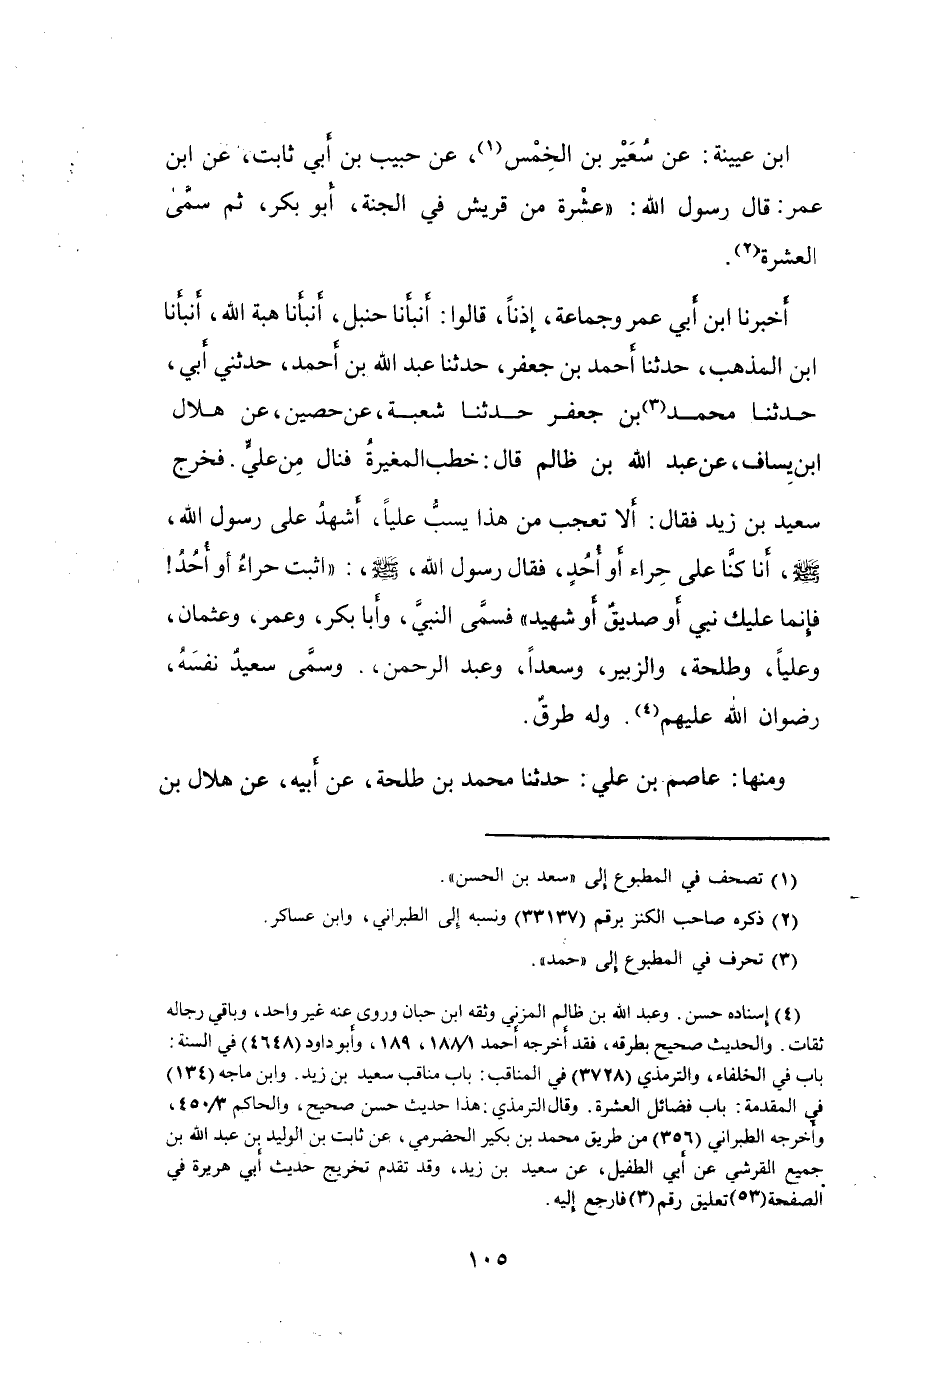 ابن عيينة: عن سُعَيْر بن الخِمْس(١)، عن حبيب بن أبي ثابت، عن ابن
عمر: قال رسول الله: «عشْرة من قريش في الجنة، أبو بكر، ثم سمَّىٰ
العشرة(٢).
أخبرنا ابن أبي عمر وجماعة، إذناً، قالوا: أنبأنا حنبل، أنبأنا هبة الله، أنبأنا
ابن المذهب، حدثنا أحمد بن جعفر، حدثنا عبد الله بن أحمد، حدثني أبي،
حدثنا محمد(٣)بن جعفر حدثنا شعبة، عن حصين، عن هلال
ابن يِساف، عن عبد الله بن ظالم قال: خطب المغيرةُ فنال مِن عليٍّ. فخرج
سعيد بن زيد فقال: ألا تعجب من هذا يسبُّ علياً، أشهدُ على رسول الله،
ﷺ، أنا كنَّا على حِراء أو أُحُدٍ، فقال رسول الله، ﷺ،: «اثبت حراءُ أو أُحُدُ!
فإنما عليك نبي أو صديقٌ أو شهيد» فسمَّى النبيَّ، وأبا بكر، وعمر، وعثمان،
وعلياً، وطلحة، والزبير، وسعداً، وعبد الرحمن،. وسمَّى سعيدٌ نفسَهُ،
رضوان الله عليهم(٤). وله طرقٌ.
ومنها: عاصم بن علي: حدثنا محمد بن طلحة، عن أبيه، عن هلال بن
(١) تصحف في المطبوع إلى «سعد بن الحسن».
(٢) ذكره صاحب الكنز برقم (٣٣١٣٧) ونسبه إلى الطبراني، وابن عساكر.
(٣) تحرف في المطبوع إلى «حمد».
(٤) إسناده حسن. وعبد الله بن ظالم المزني وثقه ابن حبان وروى عنه غير واحد، وباقي رجاله
ثقات. والحديث صحيح بطرقه، فقد أخرجه أحمد ١٨٨/١، ١٨٩، وأبو داود (٤٦٤٨) في السنة:
باب في الخلفاء، والترمذي (٣٧٢٨) في المناقب: باب مناقب سعيد بن زيد. وابن ماجه (١٣٤)
في المقدمة: باب فضائل العشرة. وقال الترمذي: هذا حديث حسن صحيح، والحاكم ٤٥٠/٣،
وأخرجه الطبراني (٣٥٦) من طريق محمد بن بكير الحضرمي، عن ثابت بن الوليد بن عبد الله بن
جميع القرشي عن أبي الطفيل، عن سعيد بن زيد، وقد تقدم تخريج حديث أبي هريرة في
الصفحة(٥٣)تعليق رقم(٣)فارجع إليه.
١٠٥